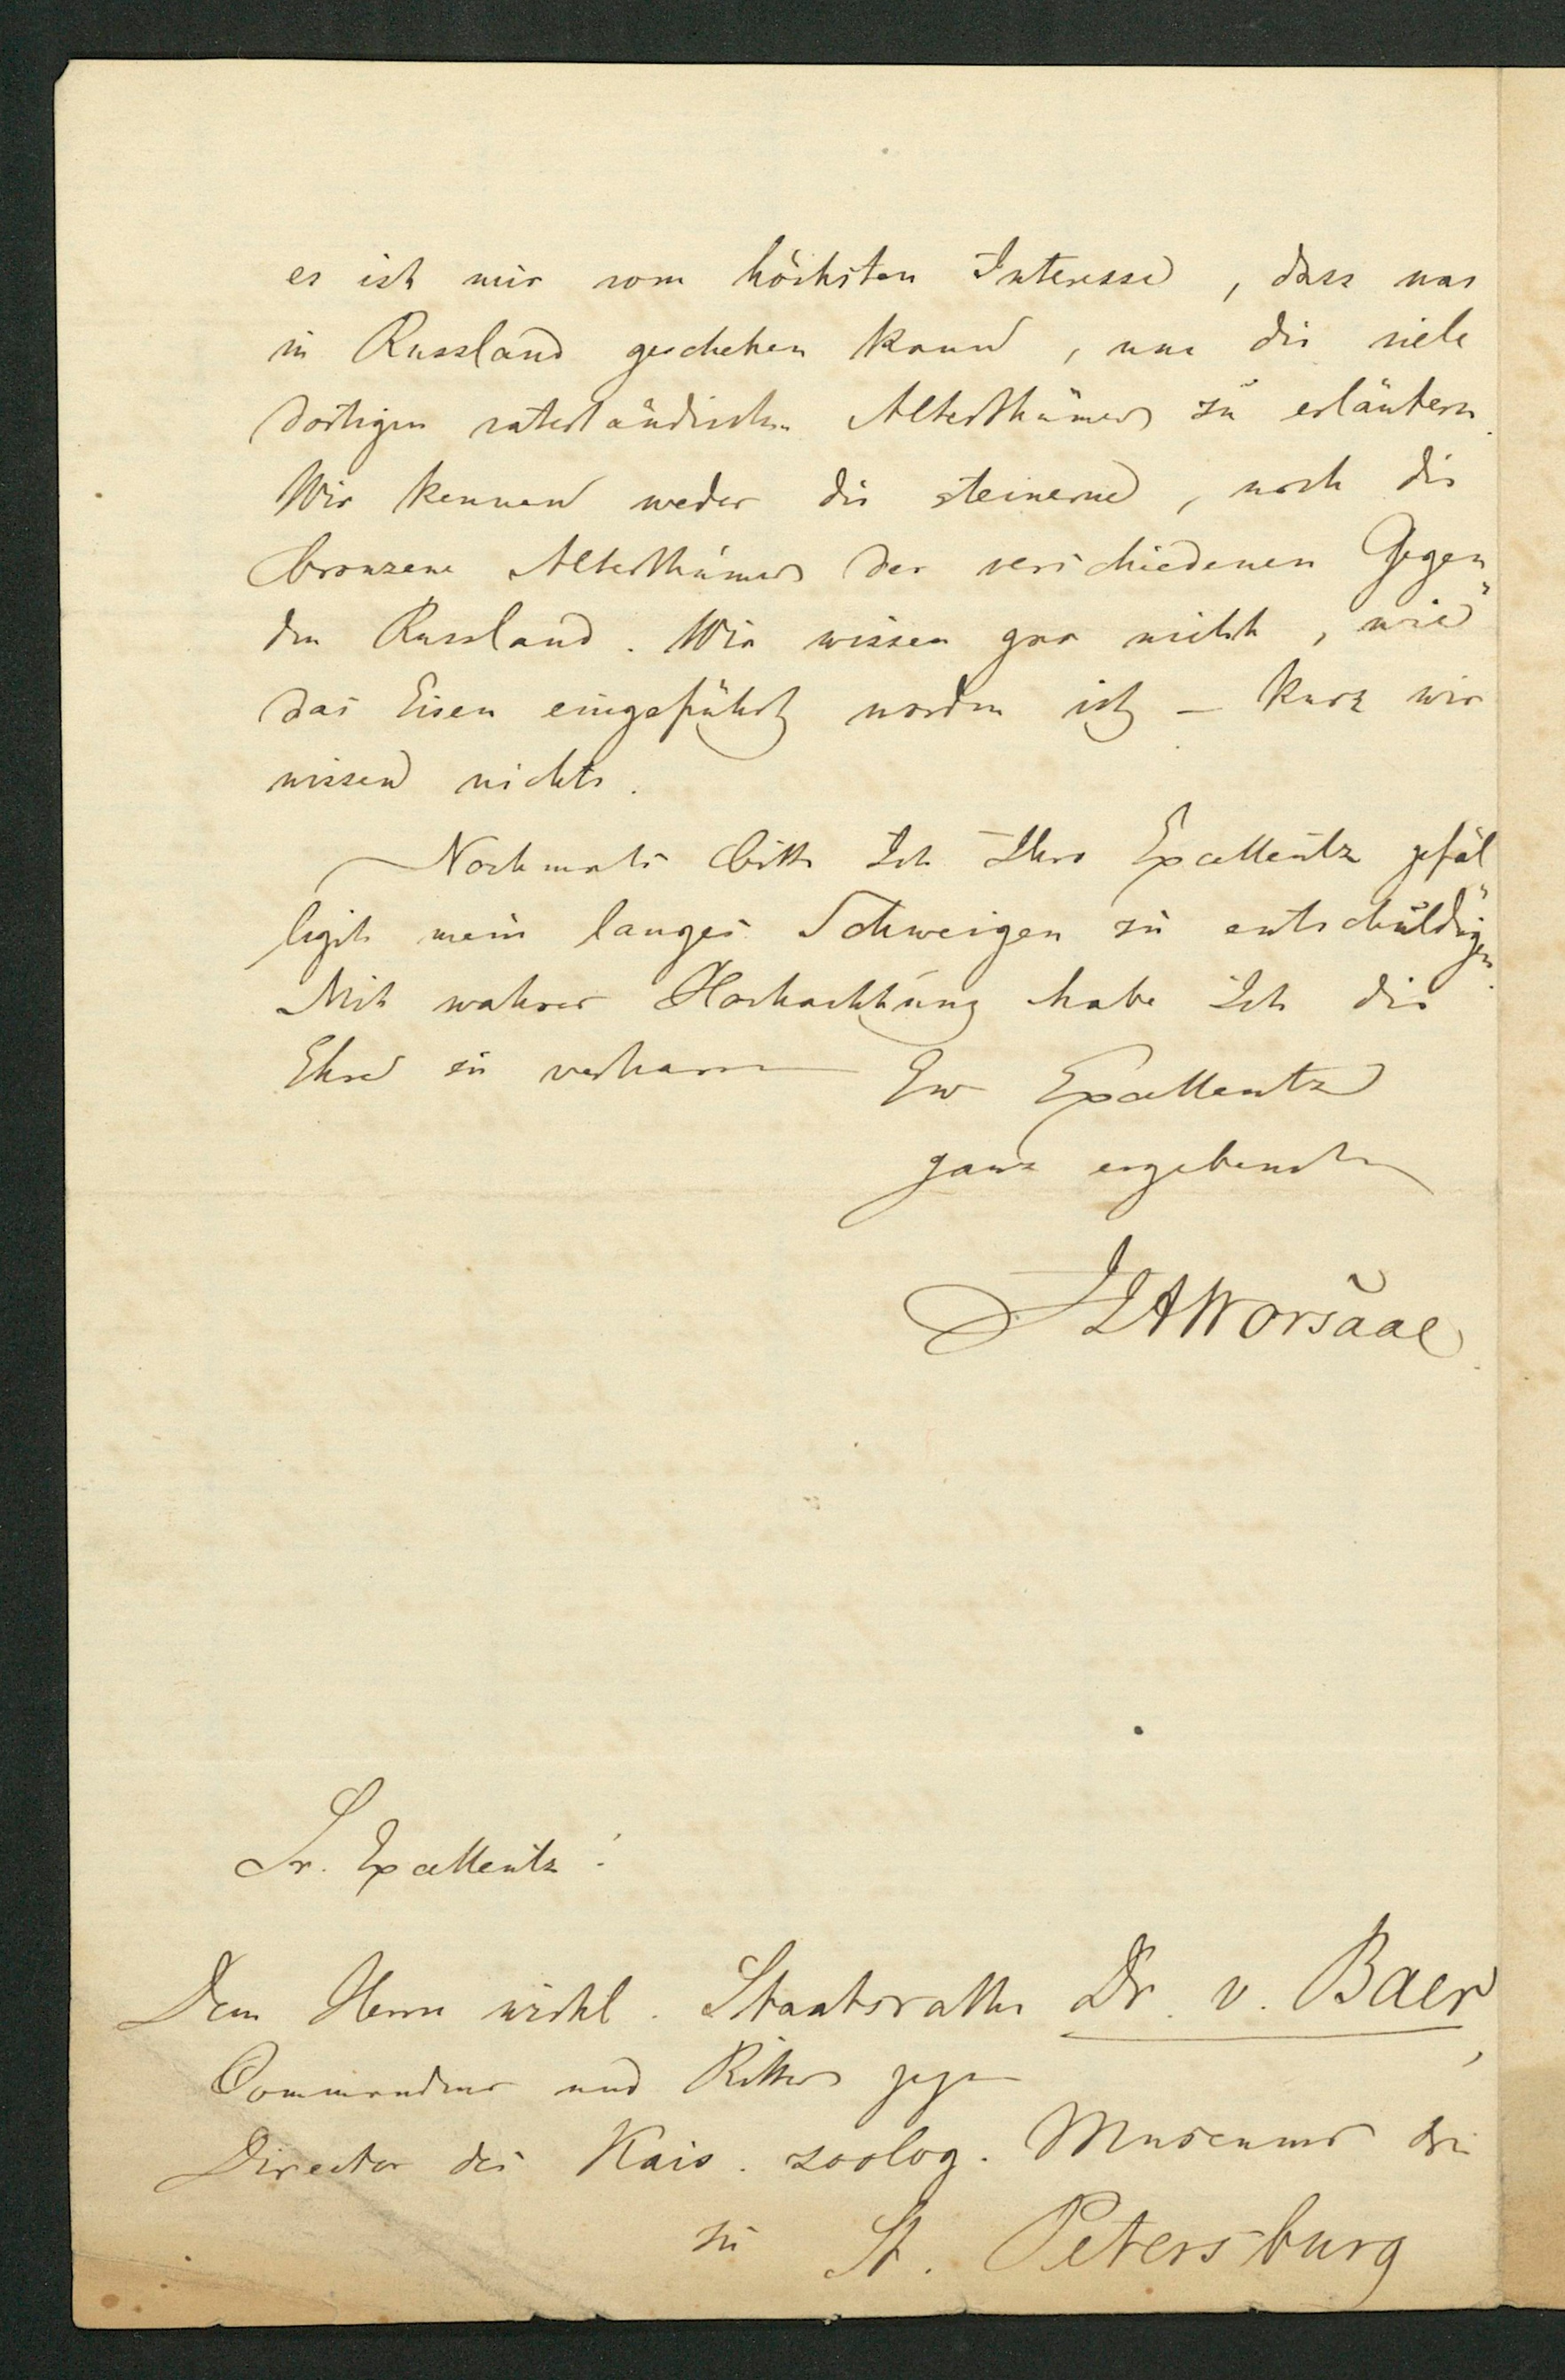 es ist mir vom höchsten Interesse, dass was
in Russland geschehen kann, um die viele
dortigen vaterländischen Alterthümer zu erläutern.
Wir kennen weder die steinerne, noch die
bronzene Alterthümer der verschiedenen Gegen-
den Russland. Wir wissen gar nicht, wie
das Eisen eingeführt worden ist – kurz wir
wissen nichts.
Nochmals bitte Ich Ihre Excellentz gefäl-
ligst mein langes Schweigen zu entschuldigen.
Mit wahrer Hochachtung habe Ich die
Ehre zu verharren
Ew Excellentz
ganz ergebenster
JJAWorsaae
Sr. Excellentz!
Dem Herrn wirkl. Staatsrathe Dr. v. Baer,
Commandeur und Ritter
Director des Kais. zoolog. Museums
zu St. Petersburg